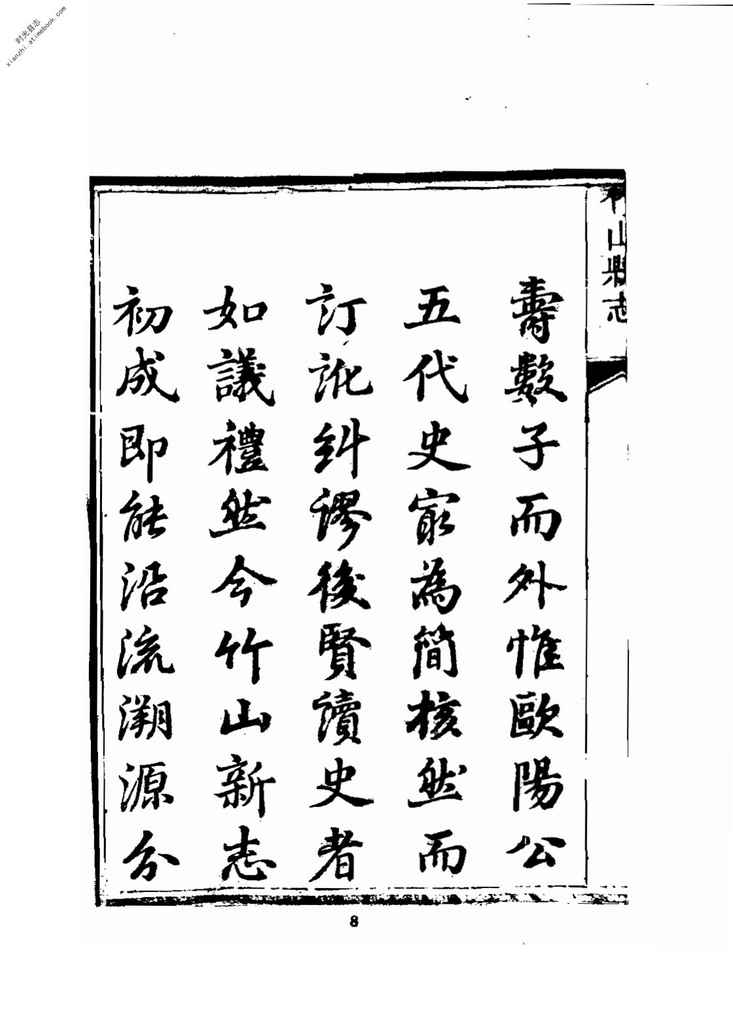 时光县志
xianzhi.atimebook.com
竹山縣志
壽數子而外惟歐陽公
五代史寂為簡核然而
訂訛糾謬後賢讀史者
如議禮然今竹山新志
初成即能沿流溯源分
8